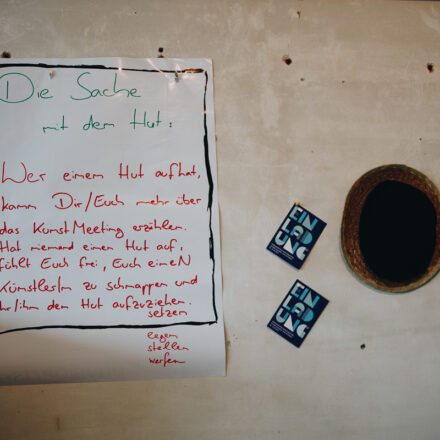 Die Sache
mit dem Hut:
Wer einem Hut aufhat,
kann Dir/Euch mehr über
das KunstMeeting erzählen.
Hat niemand einen Hut auf,
fühlt Euch frei, Euch eineN
KünstlerIn zu schnappen und
ihr/ihm den Hut aufzuziehen.
setzen
legen
stellen
werfen
EIN
LAD
UNG
EIN
LAD
UNG